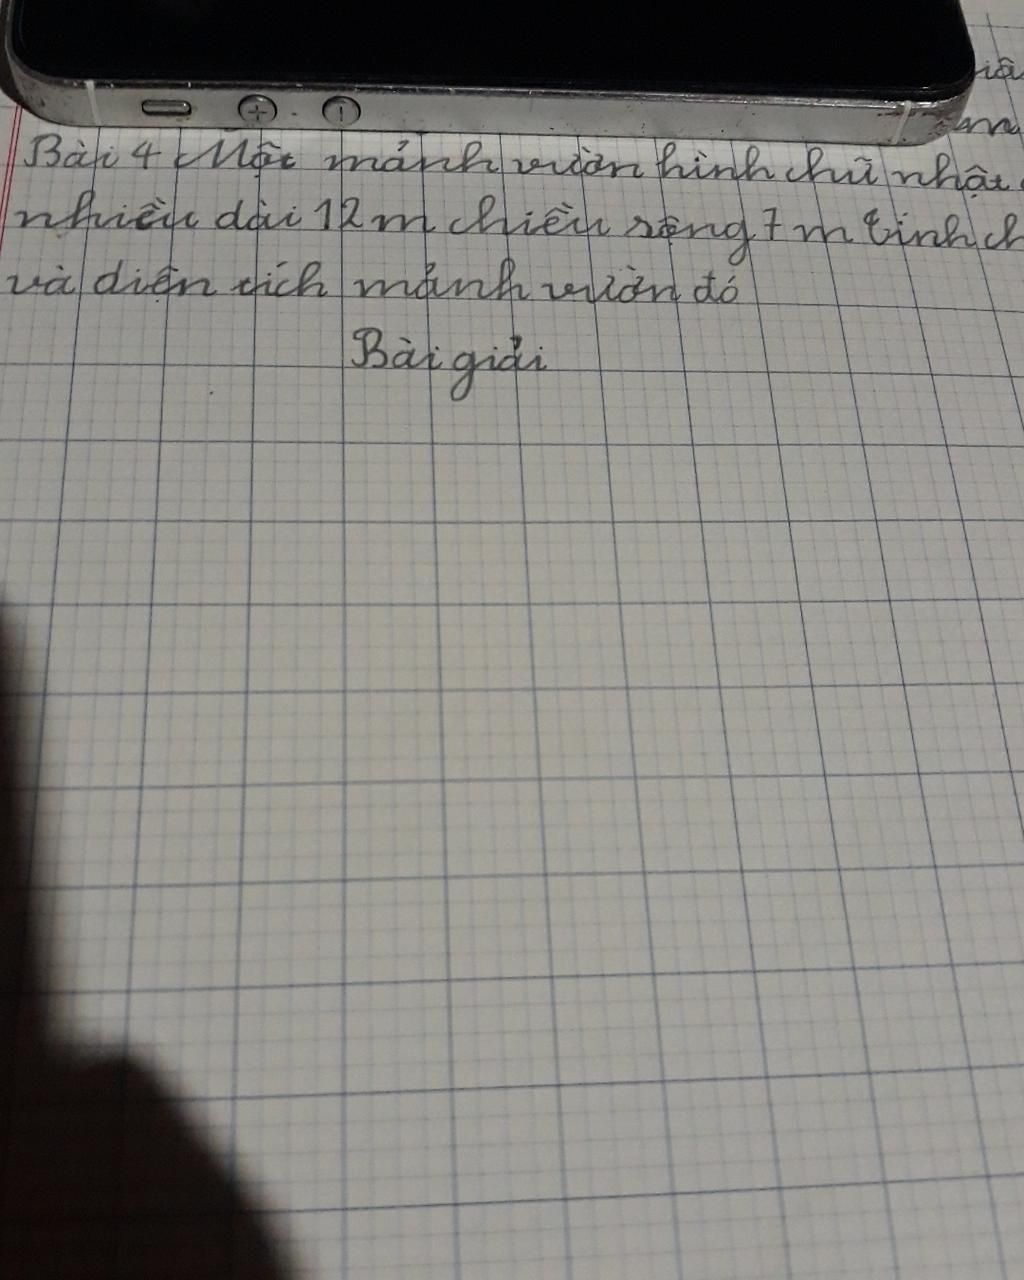 Bài 4 Một mảnh vườn hình chữ nhật
nhiều dài 12 m chiều rộng 7 m tính
và diện tích mảnh vườn đó
Bài giải